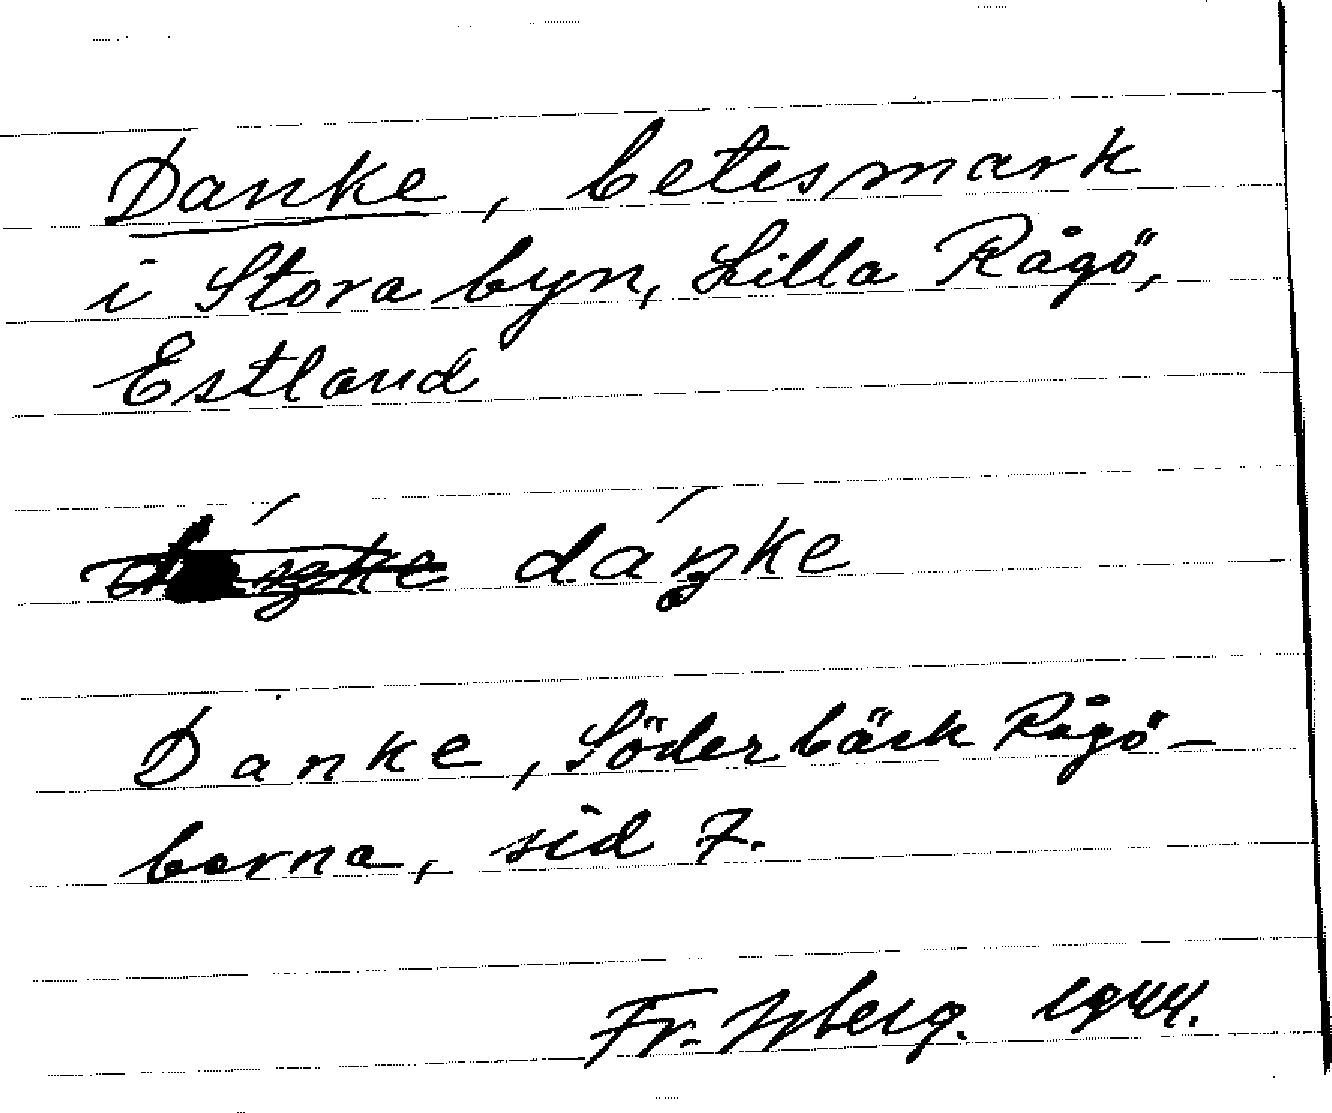 Danke, betesmark
i Stora byn, Lilla Rågö,
Estland
dáŋke
Danke, Söderbäck Rågö-
borna, sid 7.
Fr. 1944.